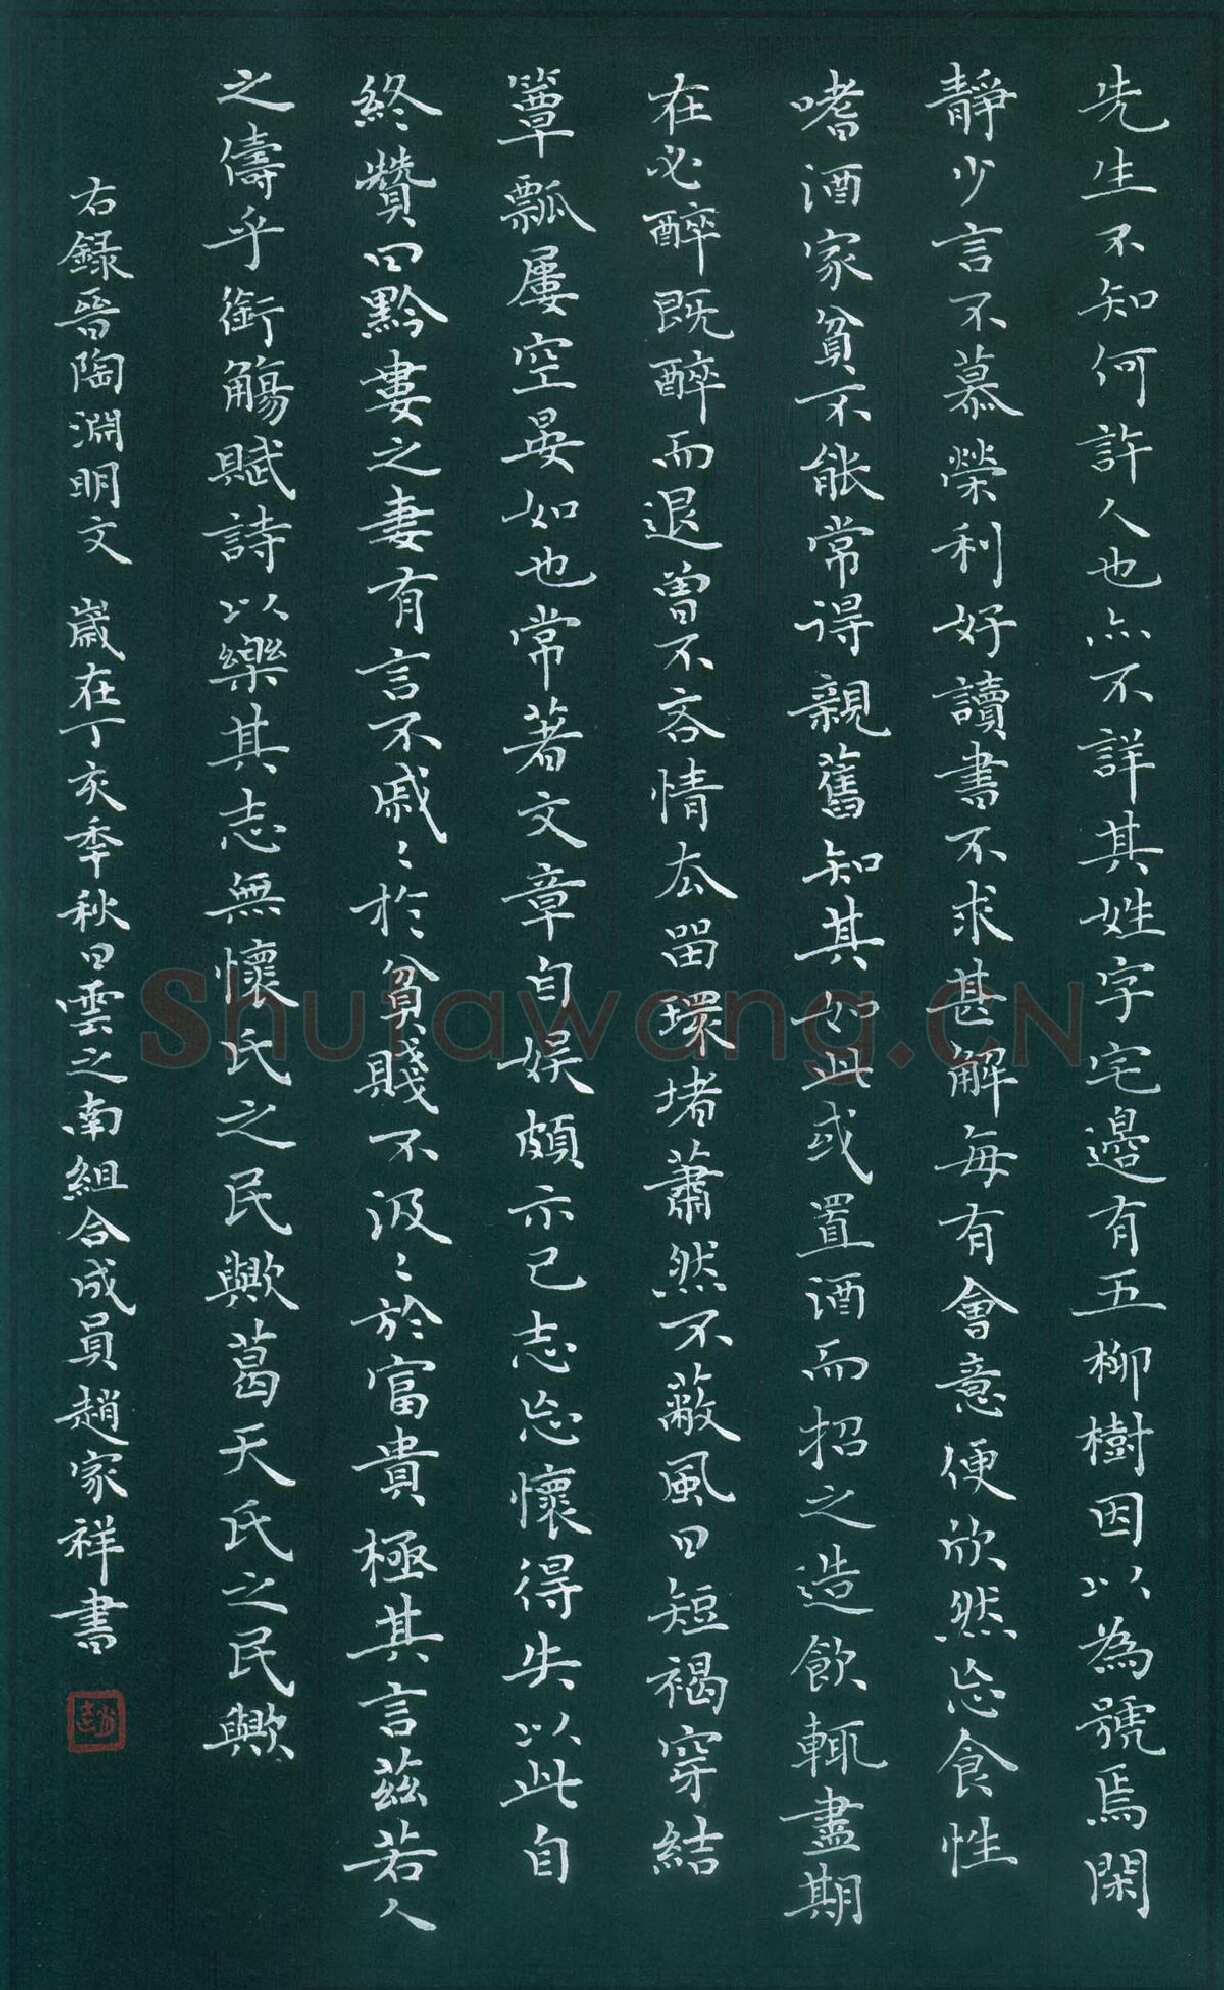 先生不知何許人也亦不詳其姓字宅邊有五柳樹因以為號焉閑
靜少言不慕榮利好讀書不求甚解每有會意便欣然忘食性
嗜酒家貧不能常得親舊知其如此或置酒而招之造飲輒盡期
在必醉既醉而退曾不吝情去留環堵蕭然不蔽風日短褐穿結
簞瓢屢空晏如也常著文章自娛頗示己志忘懷得失以此自
終贊曰黔婁之妻有言不戚〻於貧賤不汲〻於富貴極其言茲若人
之儔乎銜觴賦詩以樂其志無懷氏之民歟葛天氏之民歟
右錄晉陶淵明文 歲在丁亥季秋日雲之南組合成員趙家祥書
Shufawang.CN